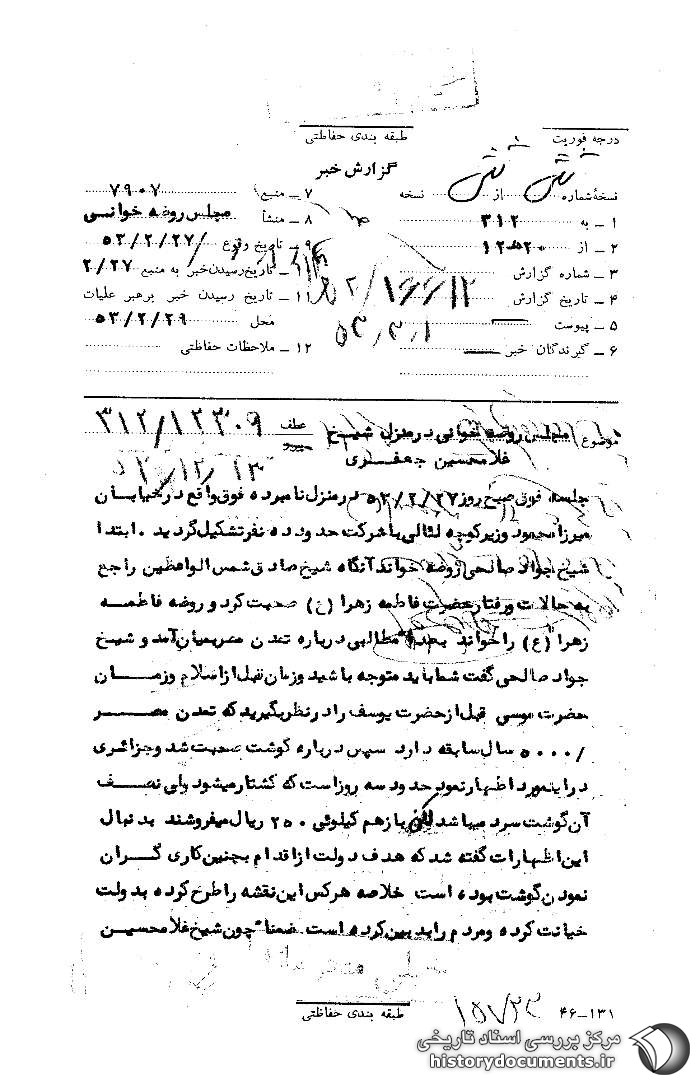 درجه فوریت
طبقه بندی حفاظتی
گزارش خبر
نسخهٔ شماره از نسخه
۱ ـ به ۳۱۲
۲ ـ از ۲۰ه۱۲
۳ ـ شماره گزارش
۴ ـ تاریخ گزارش
۵۳/۳/۱
۵ ـ پیوست
۶ ـ گیرندگان خبر
۷ ـ منبع ۷۹۰۷
۸ ـ منشأ مجلس روضه خوانی
۹ ـ تاریخ وقوع ۵۳/۲/۲۷
۱۰ ـ تاریخ رسیدن خبر به منبع ۲/۲۷
۱۱ ـ تاریخ رسیدن خبر برهبر عملیات
محل ۵۳/۲/۲۹
۱۲ ـ ملاحظات حفاظتی
موضوع مجلس روضه خوانی در منزل شیخ
غلامحسین جعفری
عطف ۳۱۲/۱۲۳۰۹
پیرو
جلسه فوق صبح روز ۵۳/۲/۲۷ در منزل نامبرده فوق واقع در خیابان
میرزا محمود وزیر کوچه لثالی با شرکت حدود ده نفر تشکیل گردید . ابتدا
شیخ جواد صالحی روضه خواند آنگاه شیخ صادق شمس الواعظین راجع
به حالات و رفتار حضرت فاطمه زهرا (ع) صحبت کرد و روضه فاطمه
زهرا (ع) را خواند بعداً مطالبی درباره تمدن مصر بمیان آمد و شیخ
جواد صالحی گفت شما باید متوجه باشید و زمان قبل از اسلام و زمان
حضرت موسی قبل از حضرت یوسف را در نظر بگیرید که تمدن مصر
۵۰۰۰/ سال سابقه دارد سپس درباره گوشت صحبت شد و جزائری
در اینمورد اظهار نمود حدود سه روز است که کشتار میشود ولی نصف
آن گوشت سرد میباشد لکن بازهم کیلوئی ۲۵۰ ریال میفروشند بدنبال
این اظهارات گفته شد که هدف دولت از اقدام بچنین کاری گران
نمودن گوشت بوده است خلاصه هرکس این نقشه را طرح کرده بدولت
خیانت کرده و مردم را بدبین کرده است ضمناً چون شیخ غلامحسین
طبقه بندی حفاظتی
۴۶-۱۳۱
مرکز بررسی اسناد تاریخی
historydocuments.ir